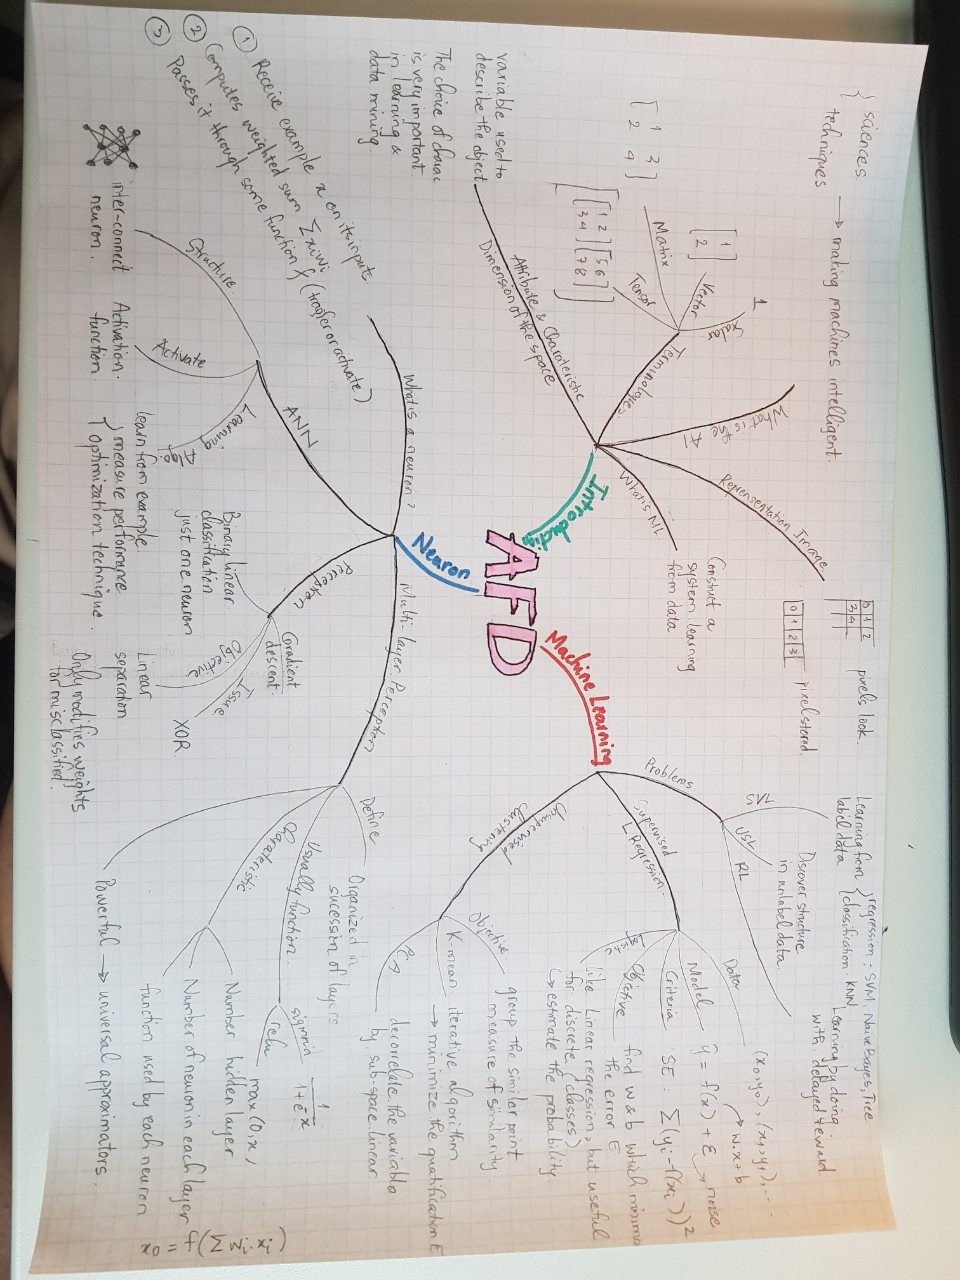 AFD
Introduction
What is the AI
sciences
techniques
→ making machines intelligent.
Representation Image
0 1 2
3 4
pixels look.
0 1 2 3
pixel stored.
What is ML
Construct a
system learning
from data
Terminologies
Scalar
1
Vector
1
2
Matrix
1 3
2 4
Tensor
1 2
3 4
5 6
7 8
Attribute & Charateristic
Dimension of the space
variable used to
describe the object
The choice of charac
is very important
in learning &
data mining.
Machine Learning
Problems
SVL
Learning from
label data
regression : SVM, Naive Bayes, Tree
classification : KNN
USL
Discover structure
in unlabel data.
RL
Learning by doing
with delayed reward
Supervised
L Regression
Data
(x0,y0), (x1,y1), ....
Model
ŷ = f(x) + ε → noise
w.x+b
Criteria
SE : ∑(yi-f(xi))²
Objective
find w & b which minimo
the error E
Logistic
like Linear regression, but useful
for discrete (classes)
↳ estimate the probability.
Unsupervised
clustering
Objective
group the similar point
measure of similarity
K-mean
iterative algorithm
→ minimize the quatification E
PCA
decorrelate the variable
by sub-space linear
Neuron
What is a neuron?
① Receive example x on its inputs
② Computes weighted sum ∑xiwi
③ Passes it through some function f (transfer or activate)
ANN
Structure
inter-connect
neuron.
Activate
Activation
function.
Learning Algo.
learn from example
measure performance
optimization technique.
Perceptron
Binary linear
classification
just one neuron
Gradient
descent.
Objective
Linear
separation
Only modifies weights
for misclassified.
Issue
XOR
Multi-layer Perceptron
Define
Organized in
sucession of layers
Usually function.
sigmoid
1
1+e-x
relu
max (0,x)
Charateristic
Number hidden layer
Number of neuron in each layer
function used by each neuron
Powerful → universal approximators.
x0 = f(∑ wi.xi)